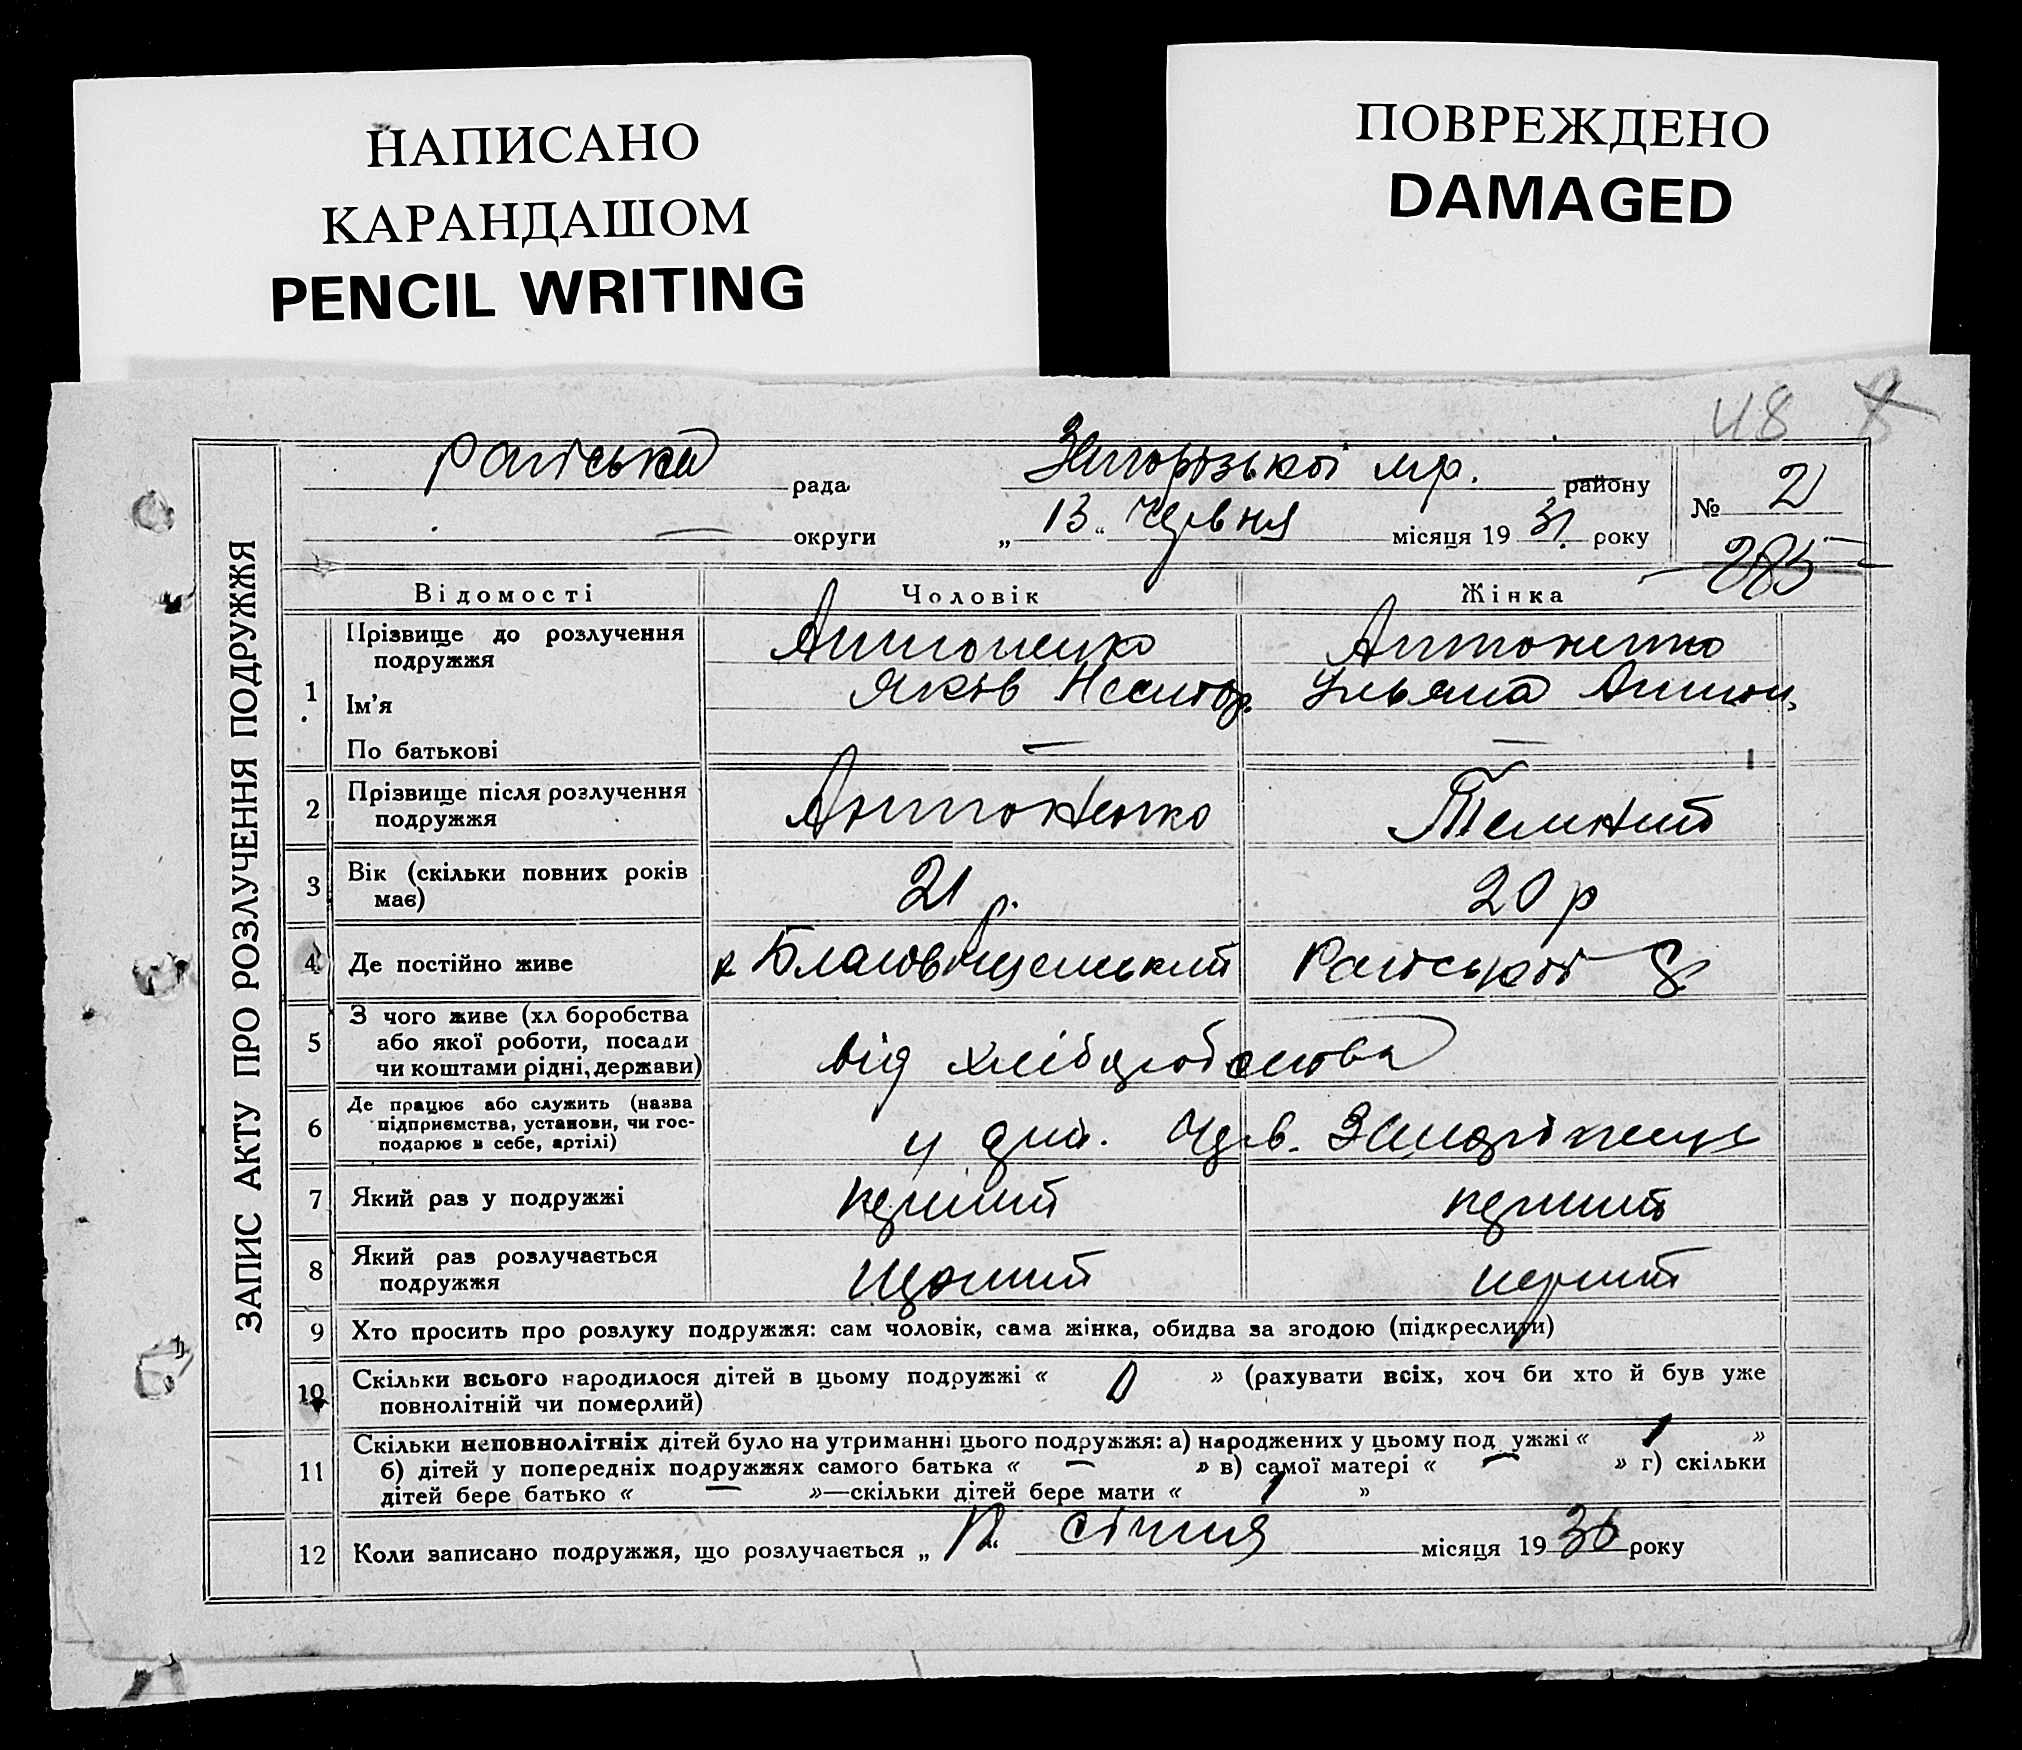 НАПИСАНО
КАРАНДАШОМ
PENCIL WRITING
ПОВРЕЖДЕНО
DAMAGED
48 8
ЗАПИС АКТУ ПРО РОЗЛУЧЕННЯ ПОДРУЖЖЯ
Раїська рада Запорізької мр. району
округи „ 13 “ Червня місяця 19 31. року
№ 2
285
Відомості Чоловік Жінка
1 Прізвище до розлучення Антоненко Антоненко
подружжя
Ім’я Яків Нестор. Ульяна Антон.
По батькові — —
2 Прізвище після розлучення Антоненко Темний
подружжя
3 Вік (скільки повних років 21 р. 20 р
має)
4 Де постійно живе х Благовіщенський Раїської
5 З чого живе (хл боробства від хліборобства
або якої роботи, посади
чи коштами рідні, держави)
6 Де працює або служить (назва у Черв.
підприємства, установи, чи гос-
подарює в себе, артілі)
7 Який раз у подружжі перший перший
8 Який раз розлучається перший
подружжя
9 Хто просить про розлуку подружжя: сам чоловік, сама жінка, обидва за згодою (підкреслити)
10 Скільки всього народилося дітей в цьому подружжі « » (рахувати всіх, хоч би хто й був уже
повнолітній чи померлий)
11 Скільки неповнолітніх дітей було на утриманні цього подружжя: а) народжених у цьому под ужжі « 1 »
б) дітей у попередніх подружжях самого батька « — » в) самої матері « — » г) скільки
дітей бере батько « — »—скільки дітей бере мати « 1 »
12 Коли записано подружжя, що розлучається „ 12 “ січня місяця 19 30 року